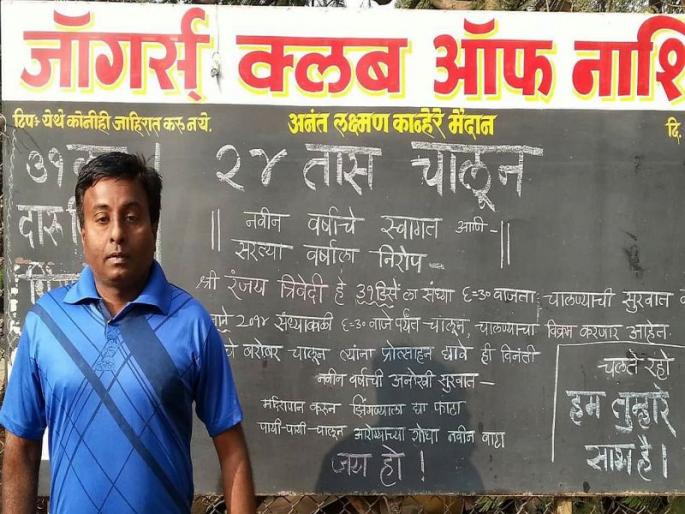 जॉगर्स् क्लब ऑफ नाशि
टिपः येथे कोनीही जाहिरात करु नये.
अनंत लक्ष्मण कान्हेरे मैदान
दि.
३१
दारू
२४ तास चालून
॥ नवीन वर्षाचे स्वागत आणि - ॥
सरत्या वर्षाला निरोप -
श्री रंजय त्रिवेदी हे ३१ डिसें ला संध्या ६=३० वाजता चालण्याची सुरवात
२०१४ संध्याकाळी ६=३० वाजे पर्यंत चालून, चालण्याचा विक्रम करणार आहेत.
चे बरोबर चालून त्यांना प्रोत्साहन द्यावे ही विनंती
नवीन वर्षाची अनोखी सुरवात -
मद्यपान करून झिंगण्याला द्या फाटा
पायी-पायी-चालून आरोग्याच्या शोधा नवीन वाटा
जय हो !
चलते रहो
हम तुम्हारे
साथ है।